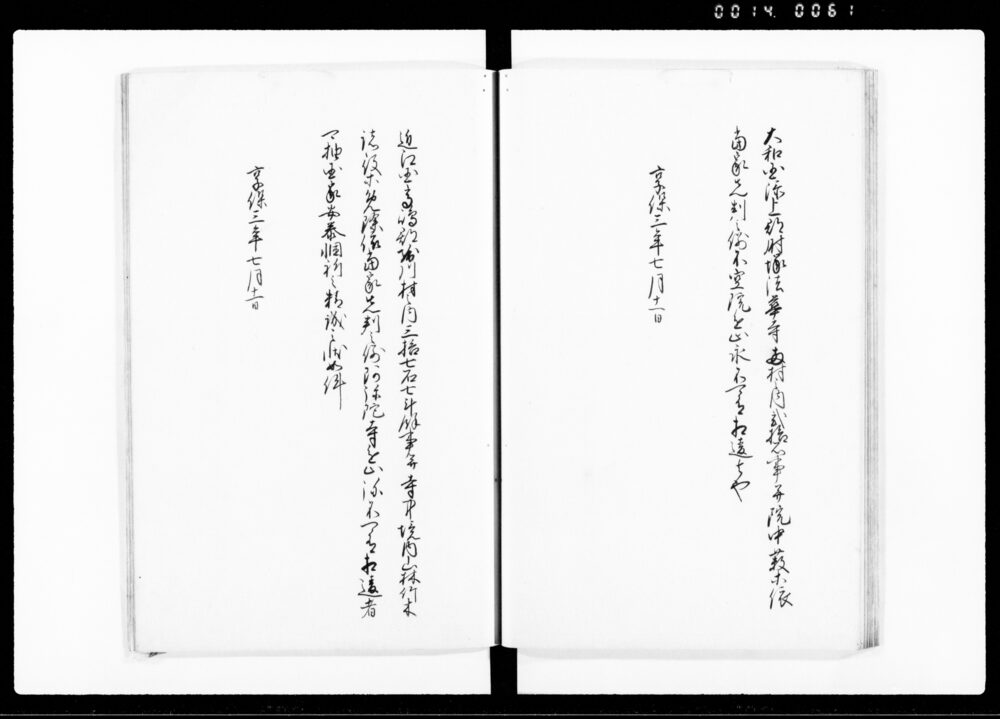 0014 0061
大和国添上郡肘塚法華寺両村内弐拾石事并院中藪等依
当家先判之例不空院進止永不可有相違者也
享保三年七月十一日
近江国高嶋郡 川村之内三拾七石七斗余事并寺中境内山林竹木
諸役等免除依当家先判之例阿弥陀寺進止弥不可有相違者
可抽国家安泰懇祈之精誠之状如件
享保三年七月十一日